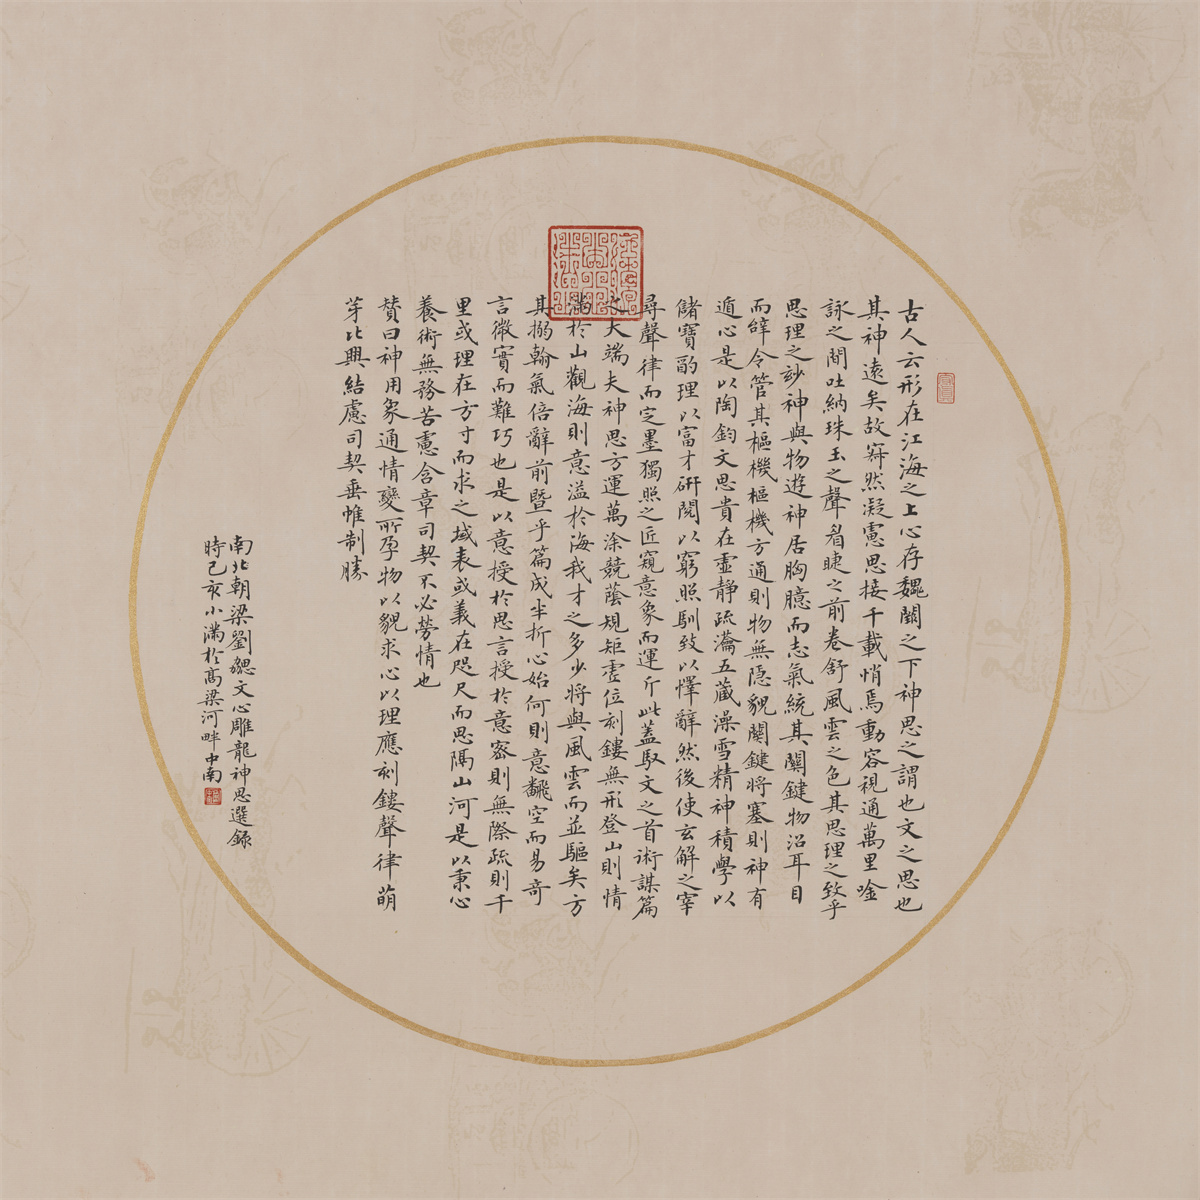 古人云形在江海之上心存魏闕之下神思之謂也文之思也
其神遠矣故寂然凝慮思接千載悄焉動容視通萬里唫
詠之間吐納珠玉之聲眉睫之前卷舒風雲之色其思理之致乎
思理之玅神與物遊神居胸臆而志氣統其關鍵物沿耳目
而辭令管其樞機樞機方通則物無隱貌關鍵將塞則神有
遁心是以陶鈞文思貴在虛靜疏瀹五藏澡雪精神積學以
儲寶酌理以富才研閱以窮照馴致以懌辭然後使玄解之宰
尋聲律而定墨獨照之匠窺意象而運斤此蓋馭文之首術謀篇
之大端夫神思方運萬涂競蔭規矩虛位刻鏤無形登山則情
滿於山觀海則意溢於海我才之多少將與風雲而並驅矣方
其搦翰氣倍辭前暨乎篇成半折心始何則意飜空而易奇
言徵實而難巧也是以意授於思言授於意密則無際疏則千
里或理在方寸而求之域表或義在咫尺而思隔山河是以秉心
養術無務苦慮含章司契不必勞情也
贊曰神用象通情變所孕物以貌求心以理應刻鏤聲律萌
芽比興結慮司契垂帷制勝
南北朝梁劉勰文心雕龍神思選錄
時己亥小滿於高梁河畔中南